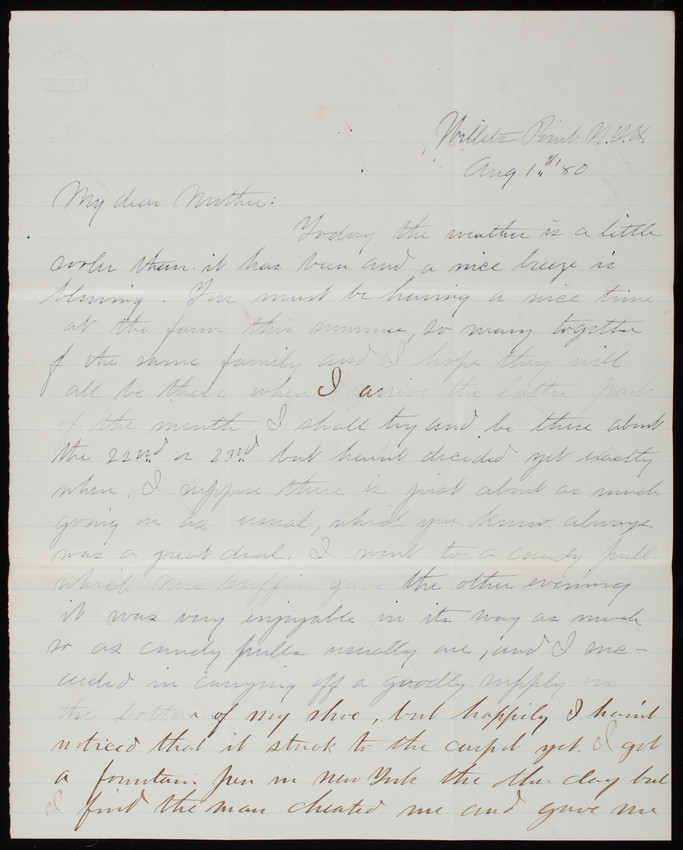 Willets Point N.Y.H.
Aug 1st 80
My dear Mother:
Today the weather is a little
cooler than it has been and a nice breeze is
blowing. You must be having a nice time
at the farm this summer, so many together
of the same family and I hope they will
all be there when I arrive the latter part
of the month. I shall try and be there about
the 22nd or 23rd but haint decided yet exactly
when. I suppose there is just about as much
going on as usual, which you know always
was a great deal. I went to a candy pull
which Mrs gave the other evening
it was very enjoyable in its way as much
so as candy pulls usually are, and I suc-
ceeded in carrying off a goodly supply on
the bottom of my shoe, but happily I haint
noticed that it stuck to the carpet yet. I got
a fountain pen in New York the other day but
I find the man cheated me and gave me